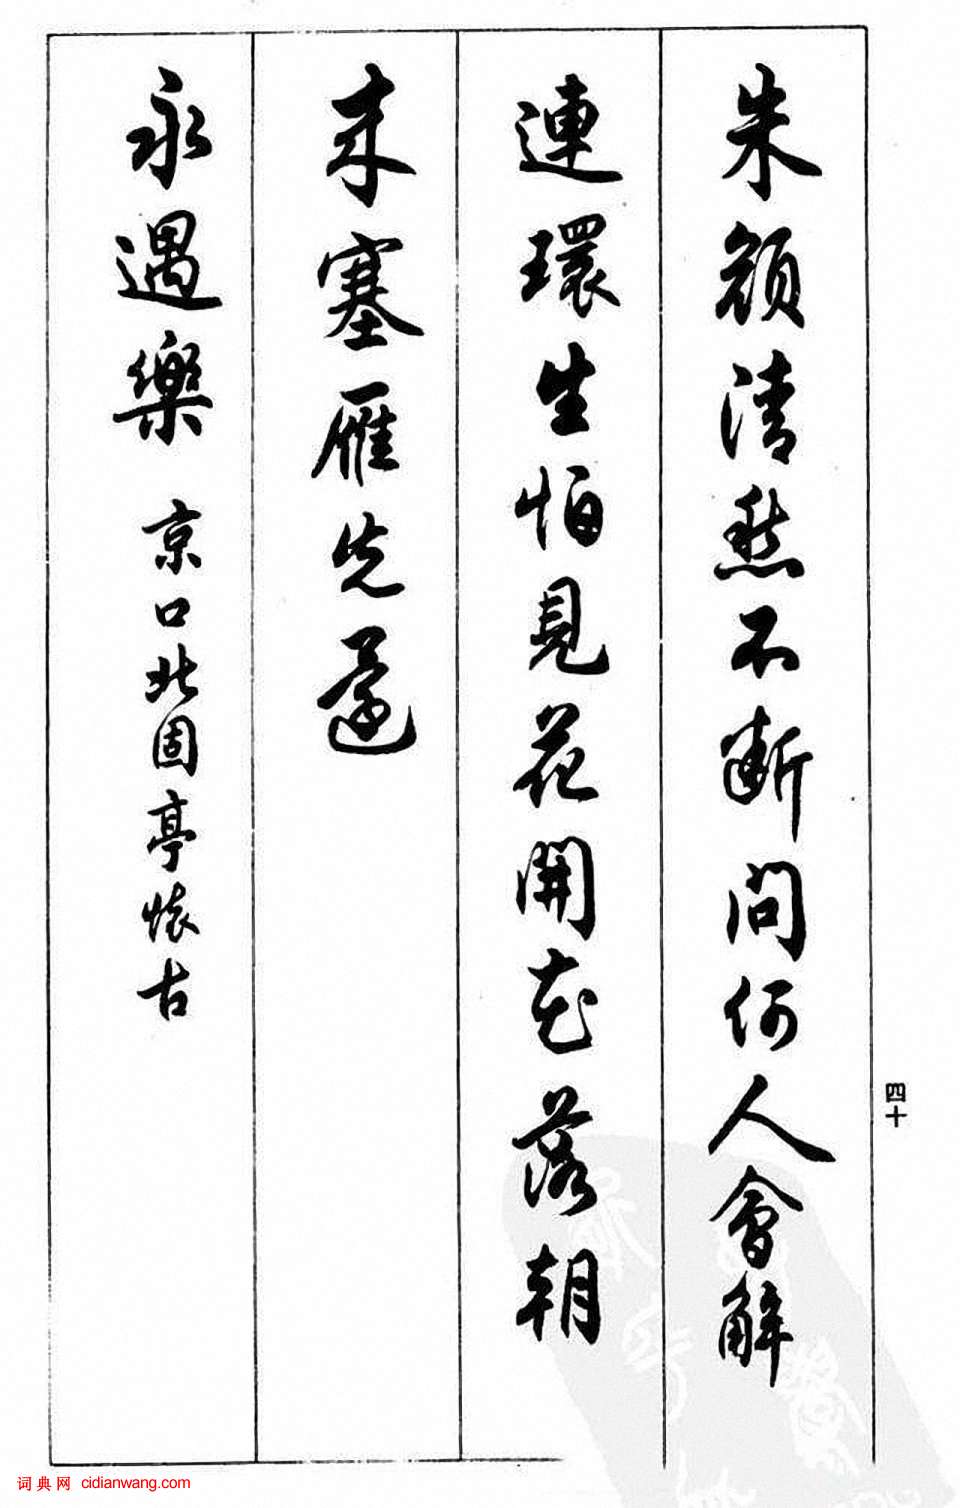 朱顔清愁不斷問何人會解
連環生怕見花開花落朝
来塞雁先還
永遇樂 京口北固亭懷古
四十
词典网 cidianwang.com